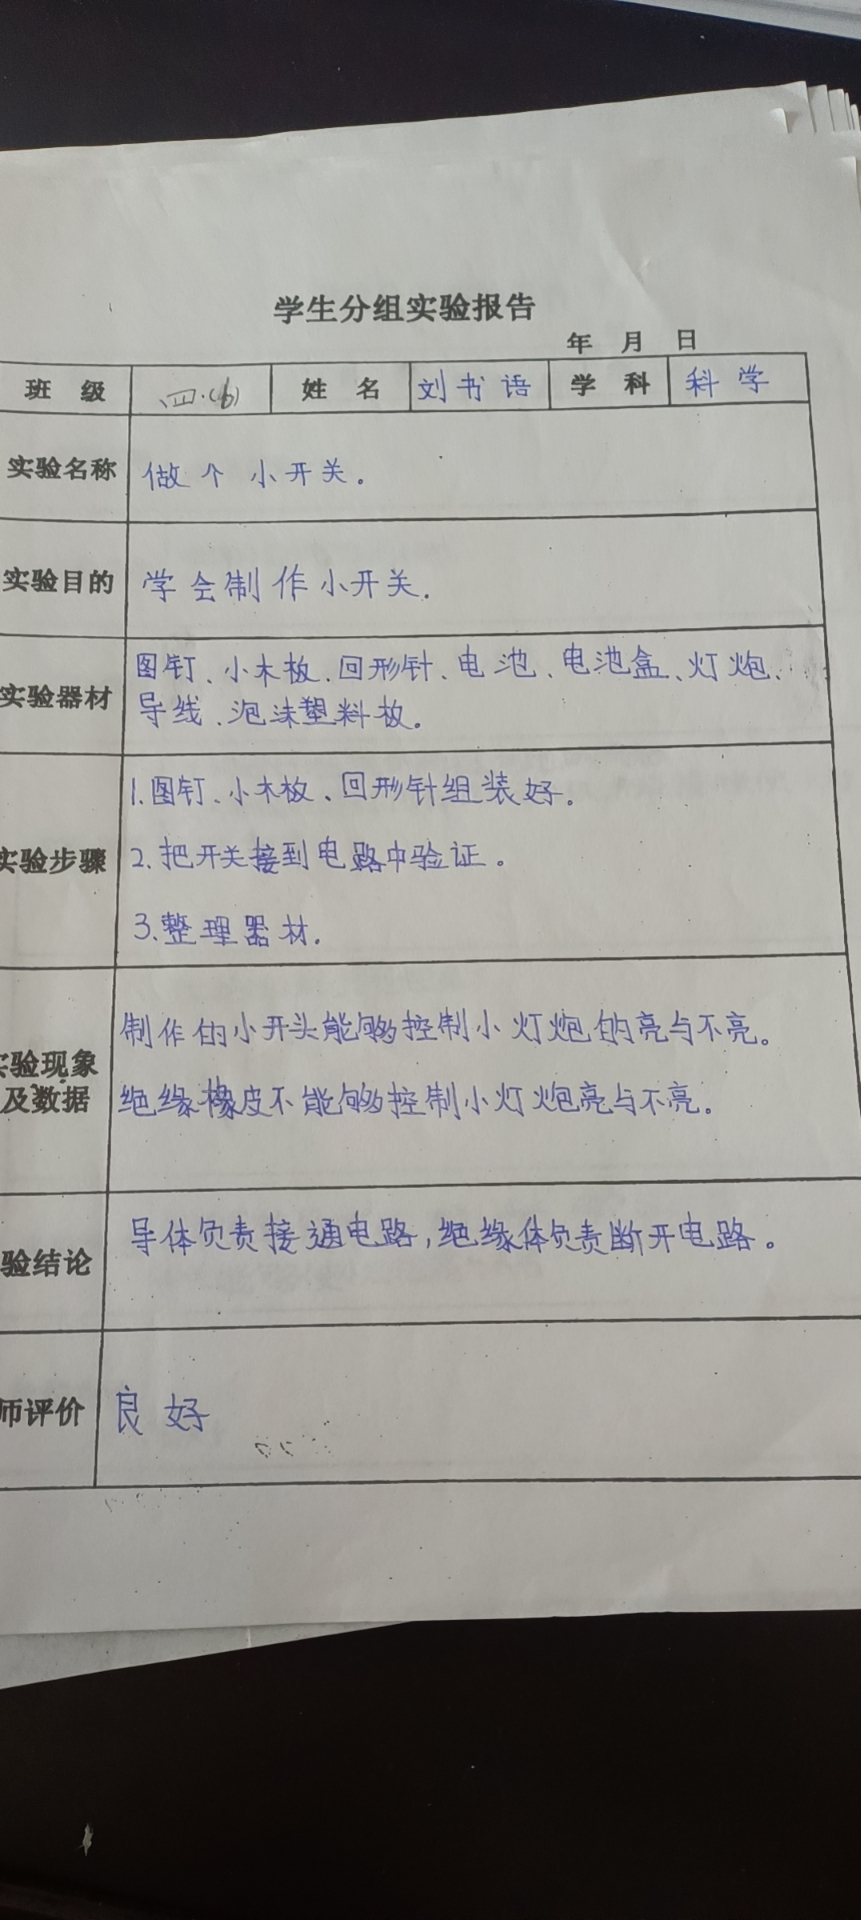 学生分组实验报告
年 月 日
班 级 四.(6) 姓 名 刘书语 学 科 科学
实验名称 做个小开关。
实验目的 学会制作小开关.
实验器材 图钉、小木板、回形针、电池、电池盒、灯炮、
导线、泡沫塑料板。
实验步骤 1.图钉、小木板、回形针组装好。
2.把开关接到电路中验证。
3.整理器材.
实验现象
及数据
制作的小开头能够控制小灯炮的亮与不亮。
绝缘橡皮不能够控制小灯炮亮与不亮。
验结论 导体负责接通电路,绝缘体负责断开电路。
师评价 良好